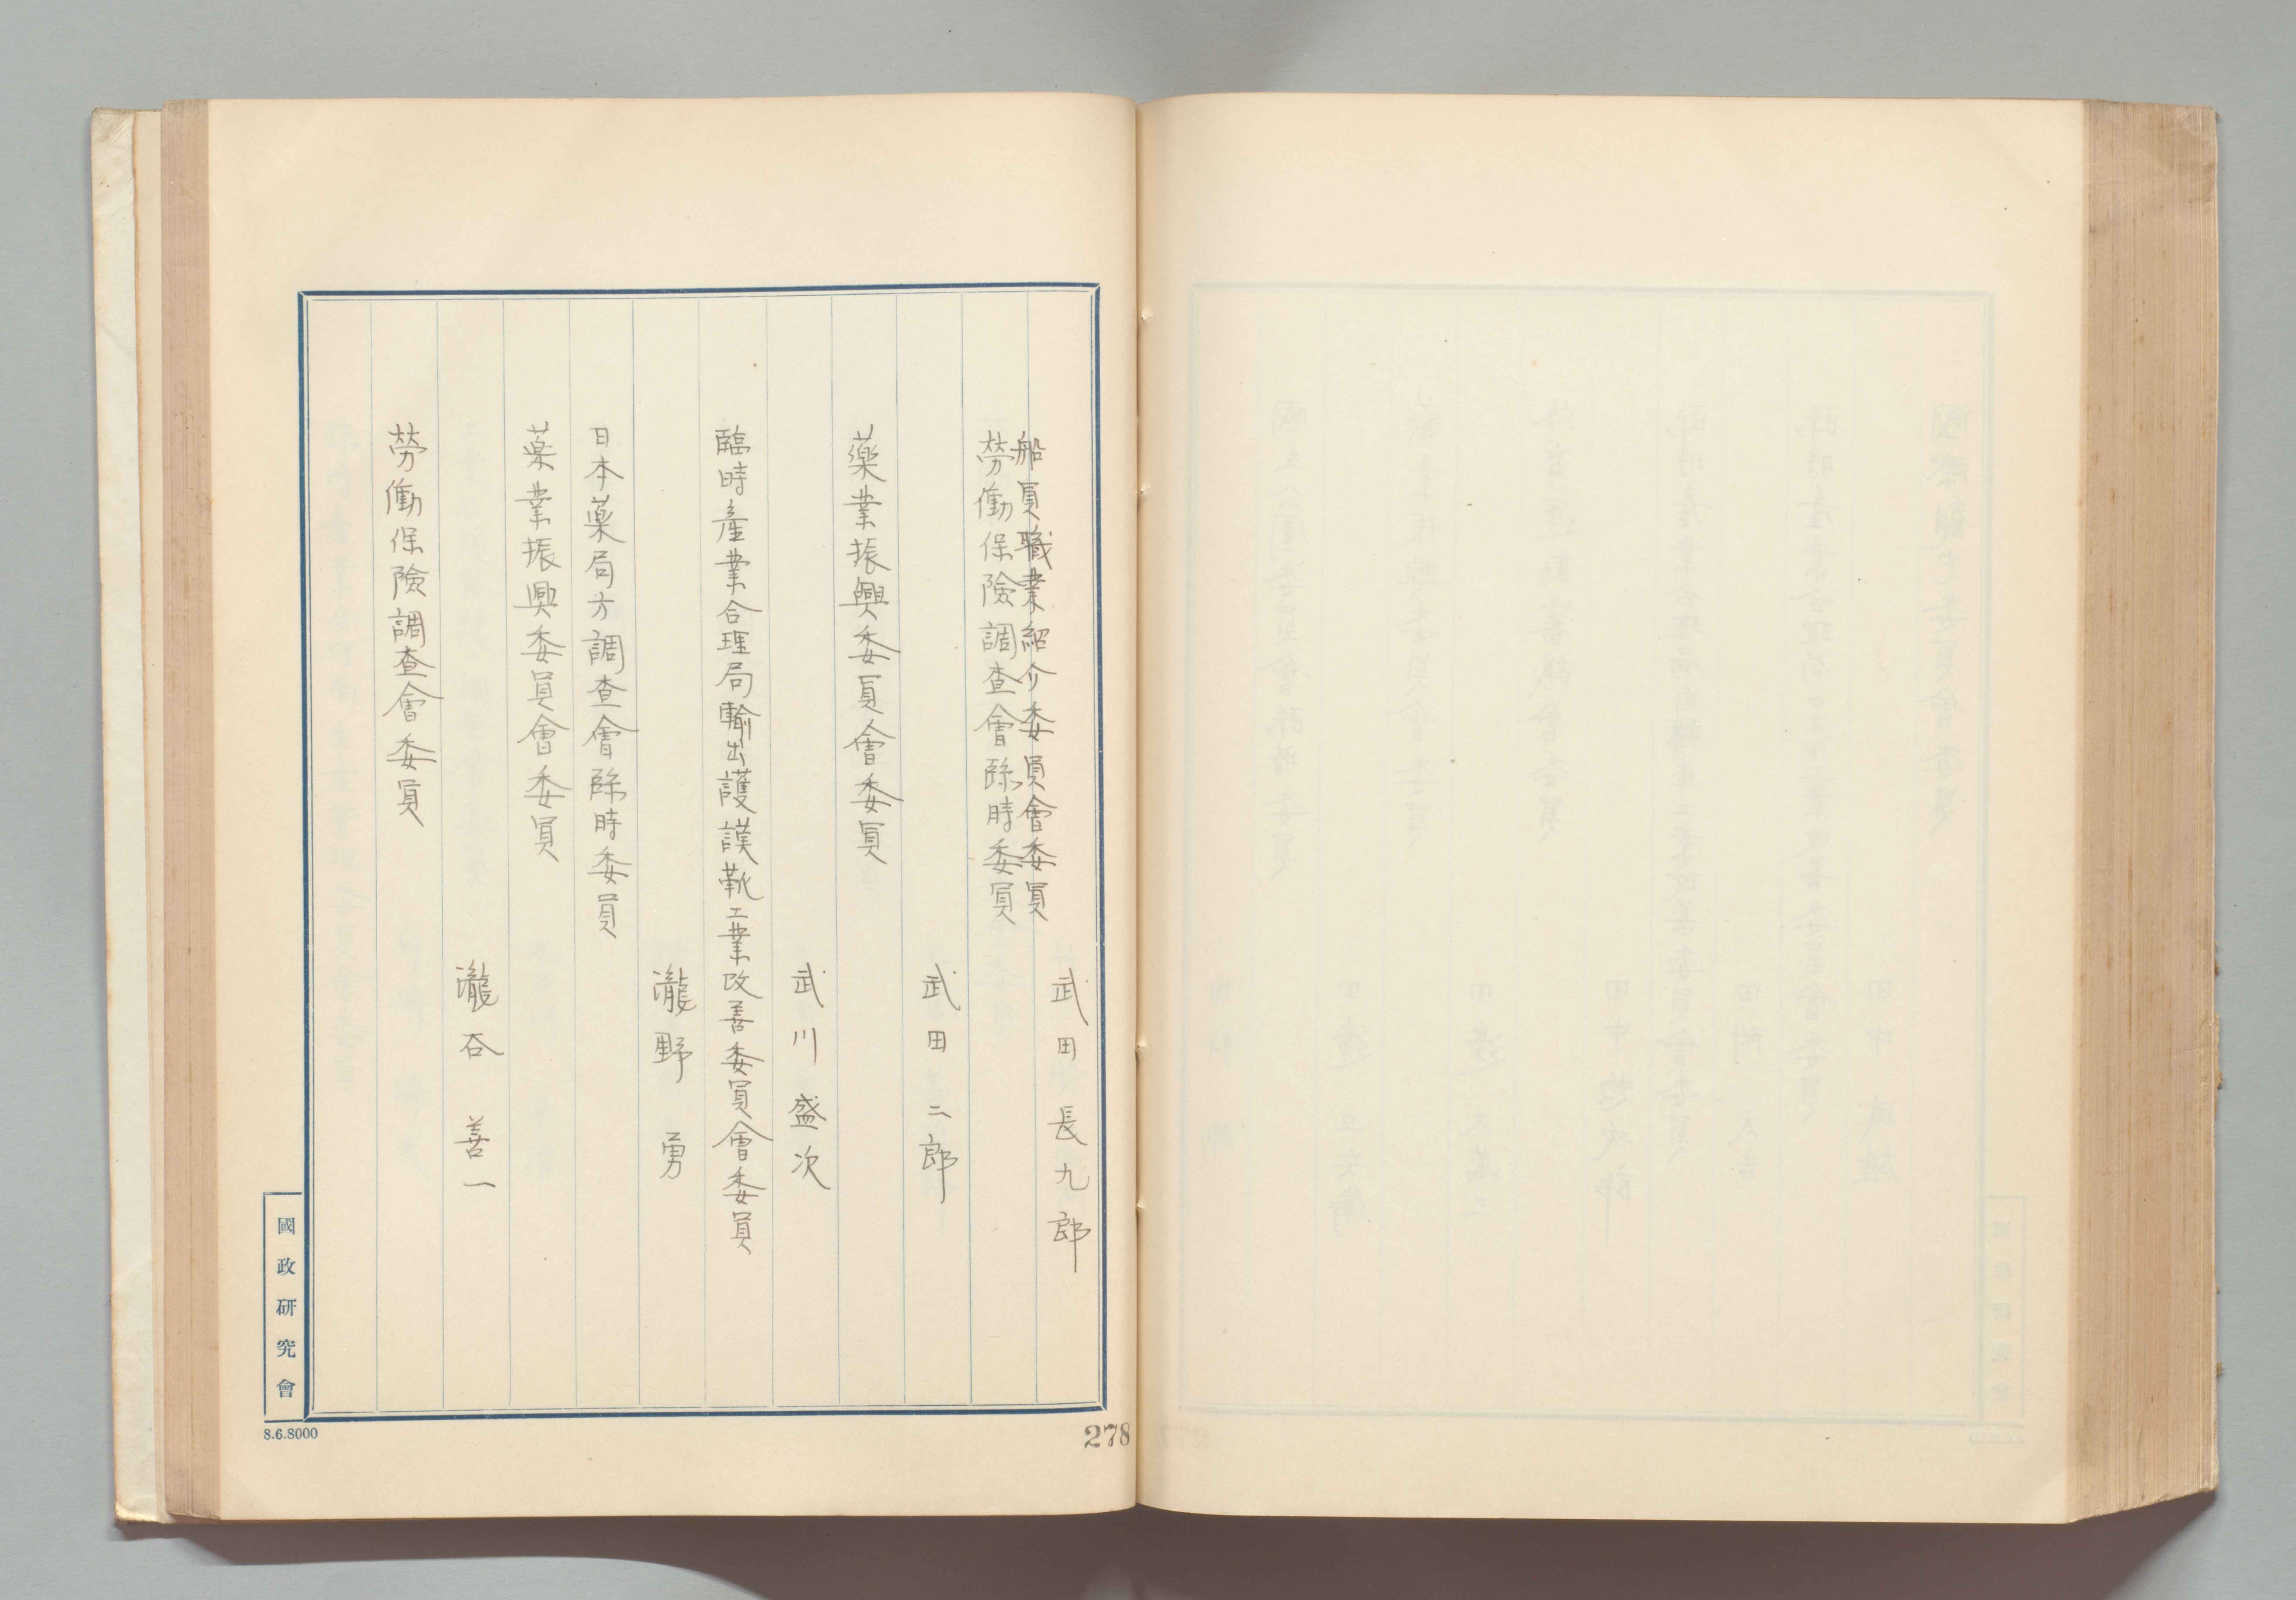 武田長九郎
船員職業紹介委員會委員
勞働保險調査會臨時委員
武田二郎
藥業振興委員會委員
武川盛次
臨時產業合理局輸出護謨靴工業改善委員會委員
瀧野勇
日本薬局方調査會臨時委員
薬業振興委員會委員
瀧谷善一
勞働保險調査會委員
國政研究會
8.6.8000
278